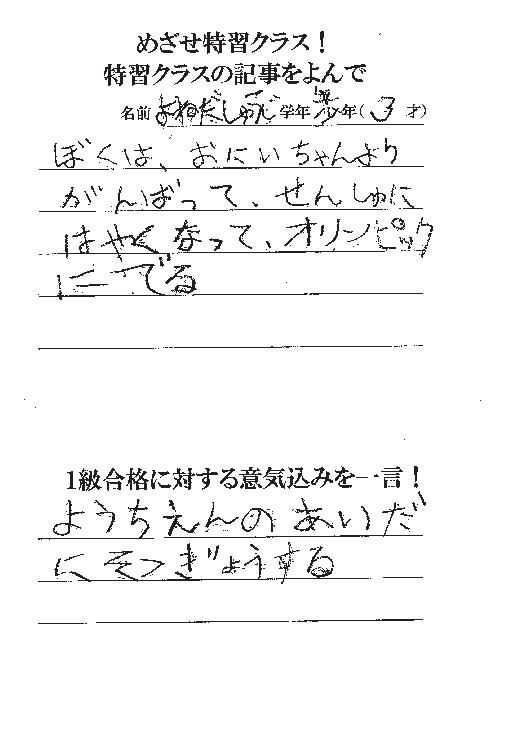 めざせ特習クラス！
特習クラスの記事をよんで
名前 よねだしゅうじ 学年 年少 年（3才）
ぼくは、おにいちゃんより
がんばって、せんしゅに
はやくなって、オリンピック
にでる
1級合格に対する意気込みを一言！
ようちえんのあいだ
にそつぎょうする